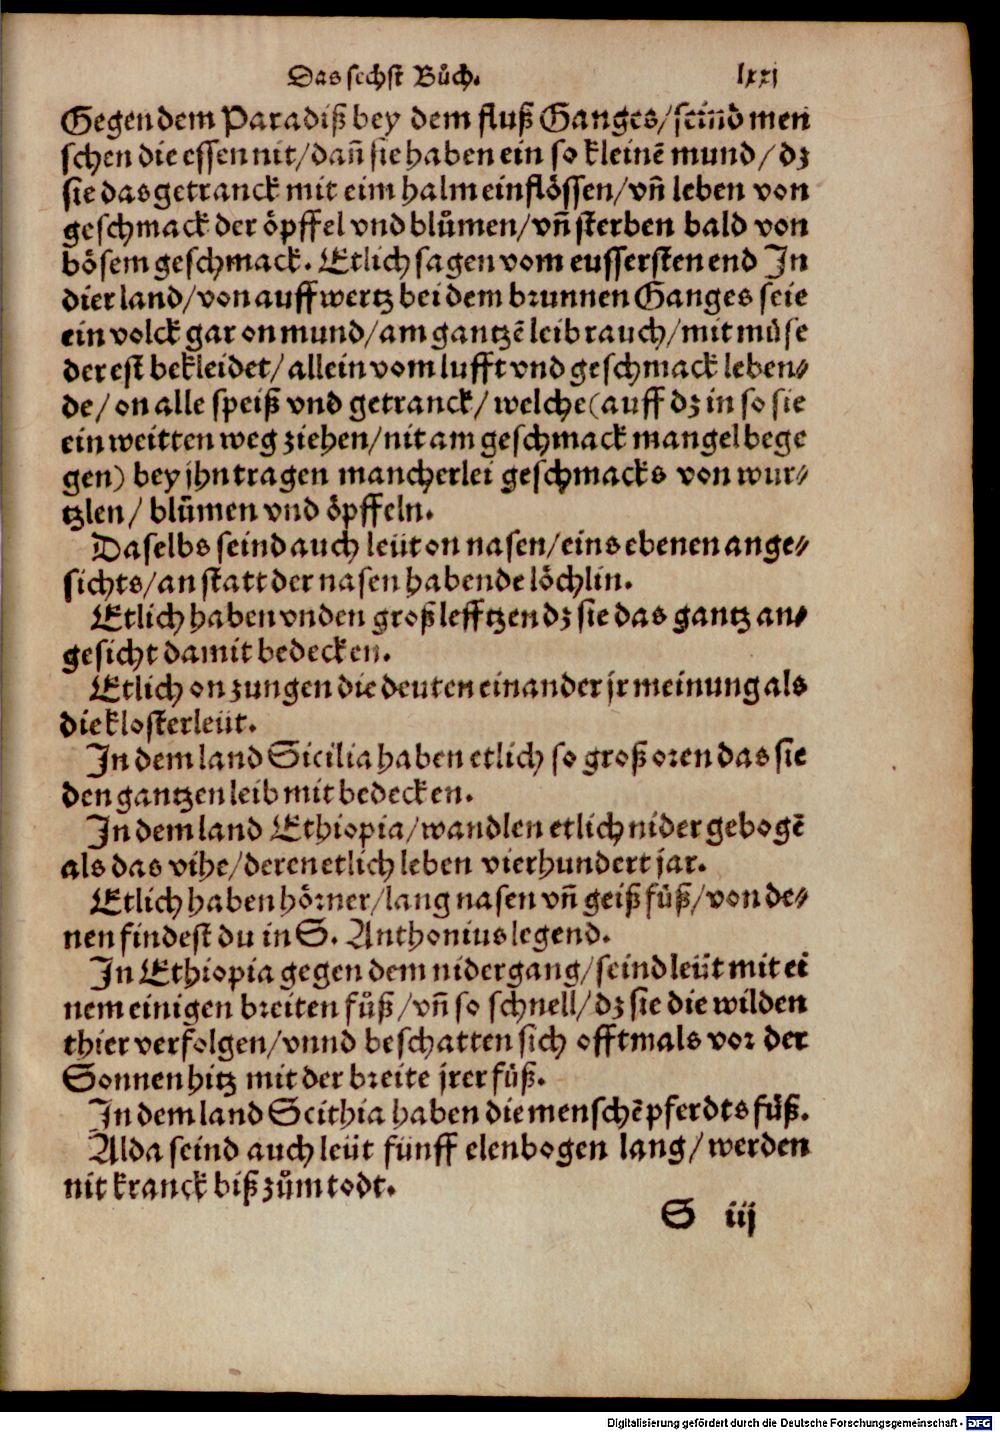 Das sechst Bůch. lxxj
Gegen dem Paradiß bey dem fluß Ganges/seind men
schen die essen nit/dañ sie haben ein so kleinẽ mund/dz
sie das getranck mit eim halm einflössen/vñ leben von
geschmack der öpffel vnd blůmen/vñ sterben bald von
bösem geschmack. Etlich sagen vom eussersten end In
dier land/von auffwertz bei dem brunnen Ganges seie
ein volck gar on mund/am gantzẽ leib rauch/mit můse
der est bekleidet/allein vom lufft vnd geschmack leben⸗
de/on alle speiß vnd getranck/welche (auff dz in so sie
ein weitten weg ziehen/nit am geschmack mangel bege
gen) bey jhn tragen mancherlei geschmacks von wur⸗
tzlen/ blůmen vnd öpffeln.
Daselbs seind auch leüt on nasen/eins ebenen ange⸗
sichts/an statt der nasen habende löchlin.
Etlich haben vnden groß lefftzen dz sie das gantz an⸗
gesicht damit bedecken.
Etlich on zungen die deuten einander jr meinung als
die klosterleüt.
In dem land Sicilia haben etlich so groß oren das sie
den gantzen leib mit bedecken.
In dem land Ethiopia/wandlen etlich nider gebogẽ
als das vihe/deren etlich leben vierhundert jar.
Etlich haben hörner/lang nasen vñ geiß füß/von de⸗
nen findest du in S. Anthonius legend.
In Ethiopia gegen dem nidergang/seind leüt mit ei
nem einigen breiten fůß/vñ so schnell/dz sie die wilden
thier verfolgen/vnnd beschatten sich offtmals vor der
Sonnen hitz mit der breite jrer füß.
In dem land Scithia haben die menschẽ pferdts füß.
Alda seind auch leüt fünff elenbogen lang/werden
nit kranck biß zům todt.
S iij
Digitalisierung gefördert durch die Deutsche Forschungsgemeinschaft - DFG